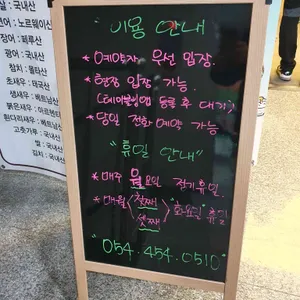 쌀 : 국내산
연어 : 노르웨이산
장어 : 페루산
광어 : 국내산
참치 :
초새우 : 태국산
생새우 : 베트남산
붉은새우 : 아르헨티
흰다리새우 : 베트남산
고춧가루 : 국내산
쌀 : 국내산
김치 : 국내산
이용 안내
* 예약자 우선 입장.
* 현장 입장 가능.
(테이블링앱 등록 후 대기)
* 당일 전화 예약 가능
"휴일 안내"
* 매주 월요일 정기휴일.
* 매월 첫째
셋째 "화요일" 휴일
054.454.0510